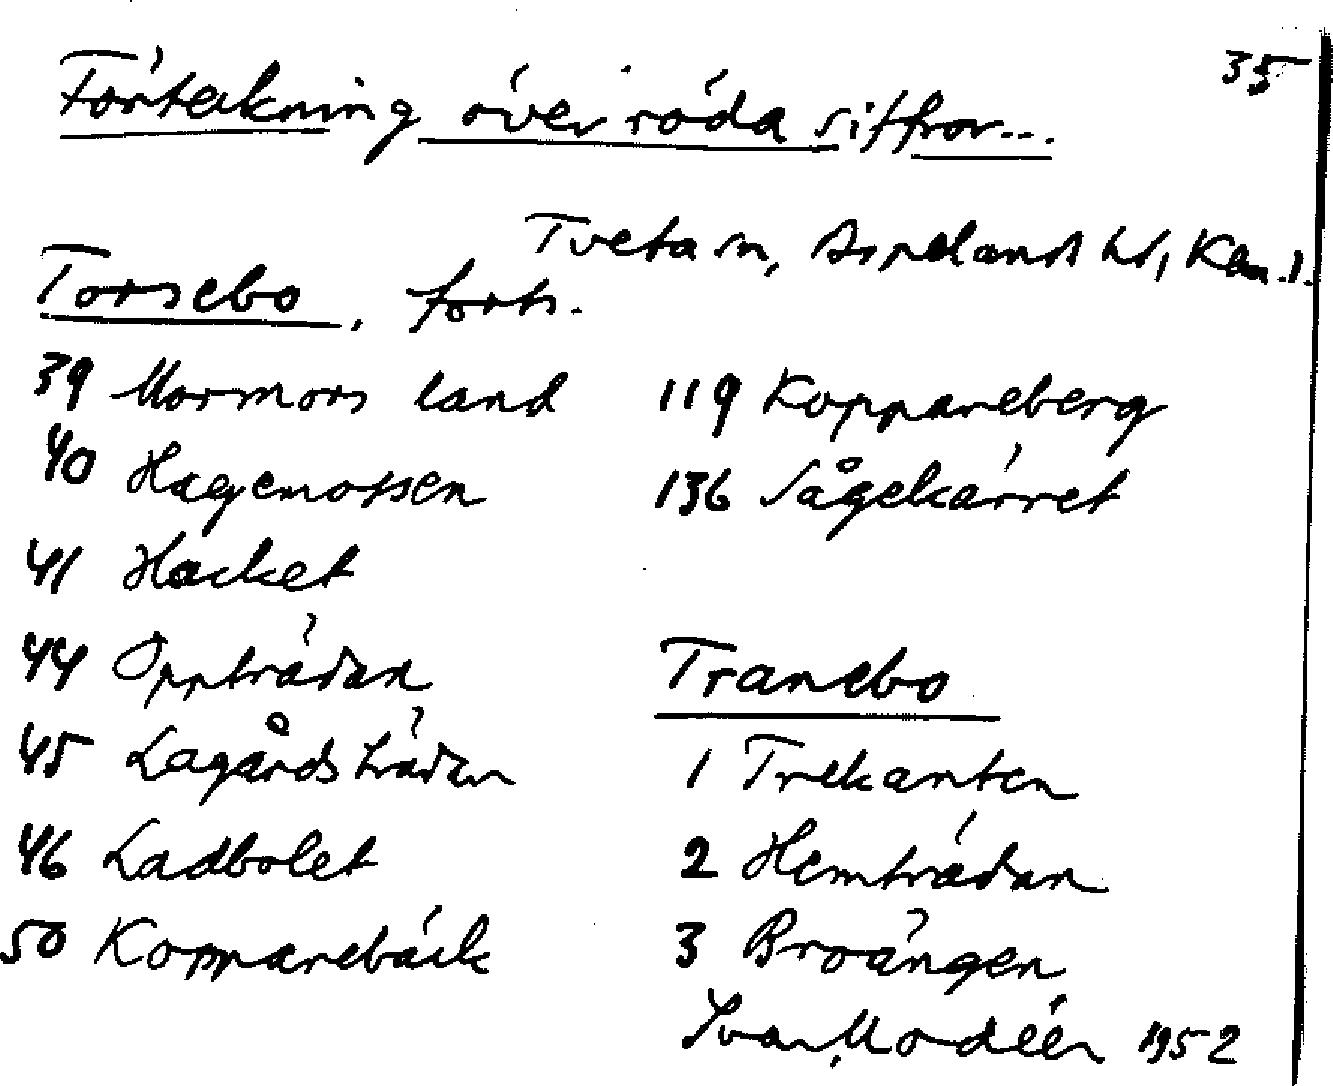 35
Förteckning över röda siffror...
Tveta sn, Aspelands hd, Kalm. l.
Torsebo, forts.
39 Mormors land
40 Hagemossen
41 Hacket
44 Oppträdan
45 Lagårdsträdan
46 Ladbolet
50 Kopparebäck
119 Koppareberg
136 Sågekärret
Tranebo
1 Trekanten
2 Hemträdan
3 Broängen
Ivar Modéer 1952